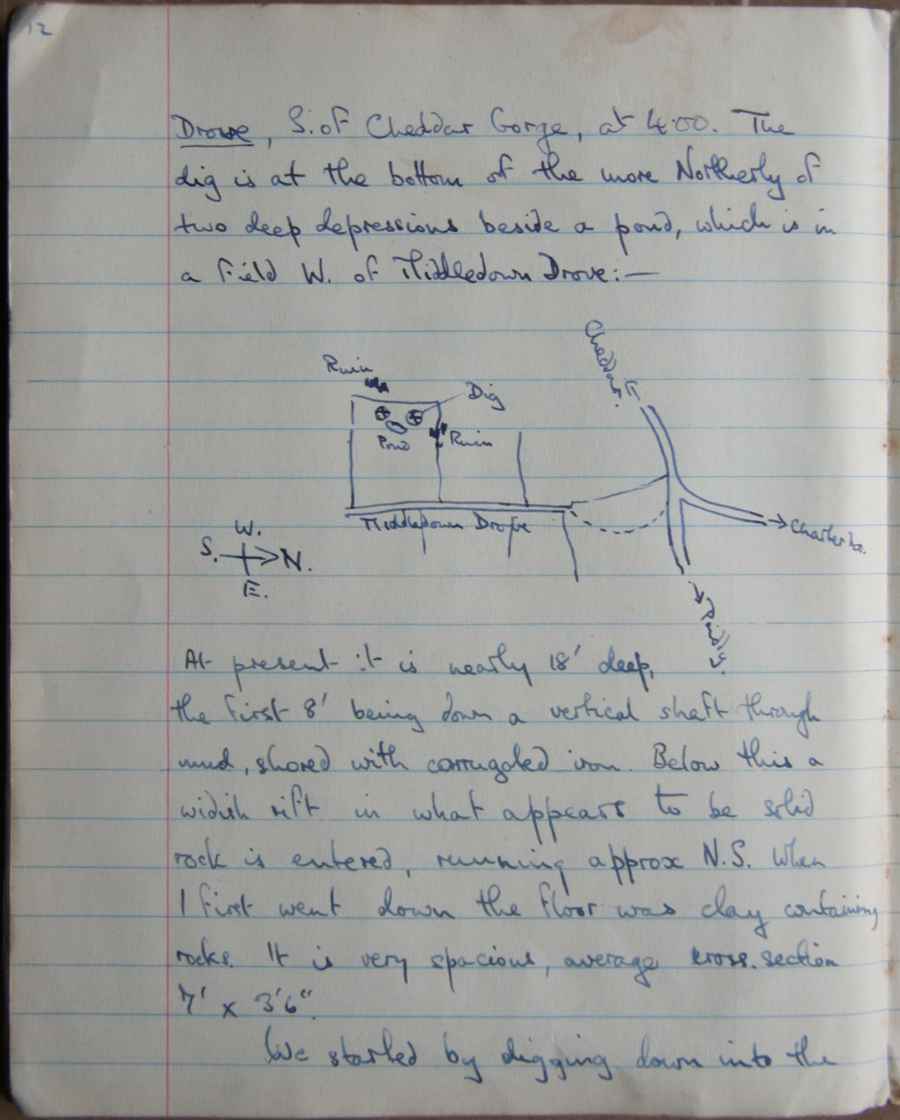 12
Drove, S. of Cheddar Gorge, at 4.00. The
dig is at the bottom of the more Northerly of
two deep depressions beside a pond, which is in
a field W. of Middledown Drove:—
Cheddar.
Ruin
Dig
Pond
Ruin
Middledown Drove
Charterhse.
W.
S. N.
E.
Priddy.
At present it is nearly 18' deep,
the first 8' being down a vertical shaft through
mud, shored with corrugated iron. Below this a
widish rift in what appears to be solid
rock is entered, running approx N.S. When
I first went down the floor was clay containing
rocks. It is very spacious, average cross-section
7' x 3'6".
We started by digging down into the